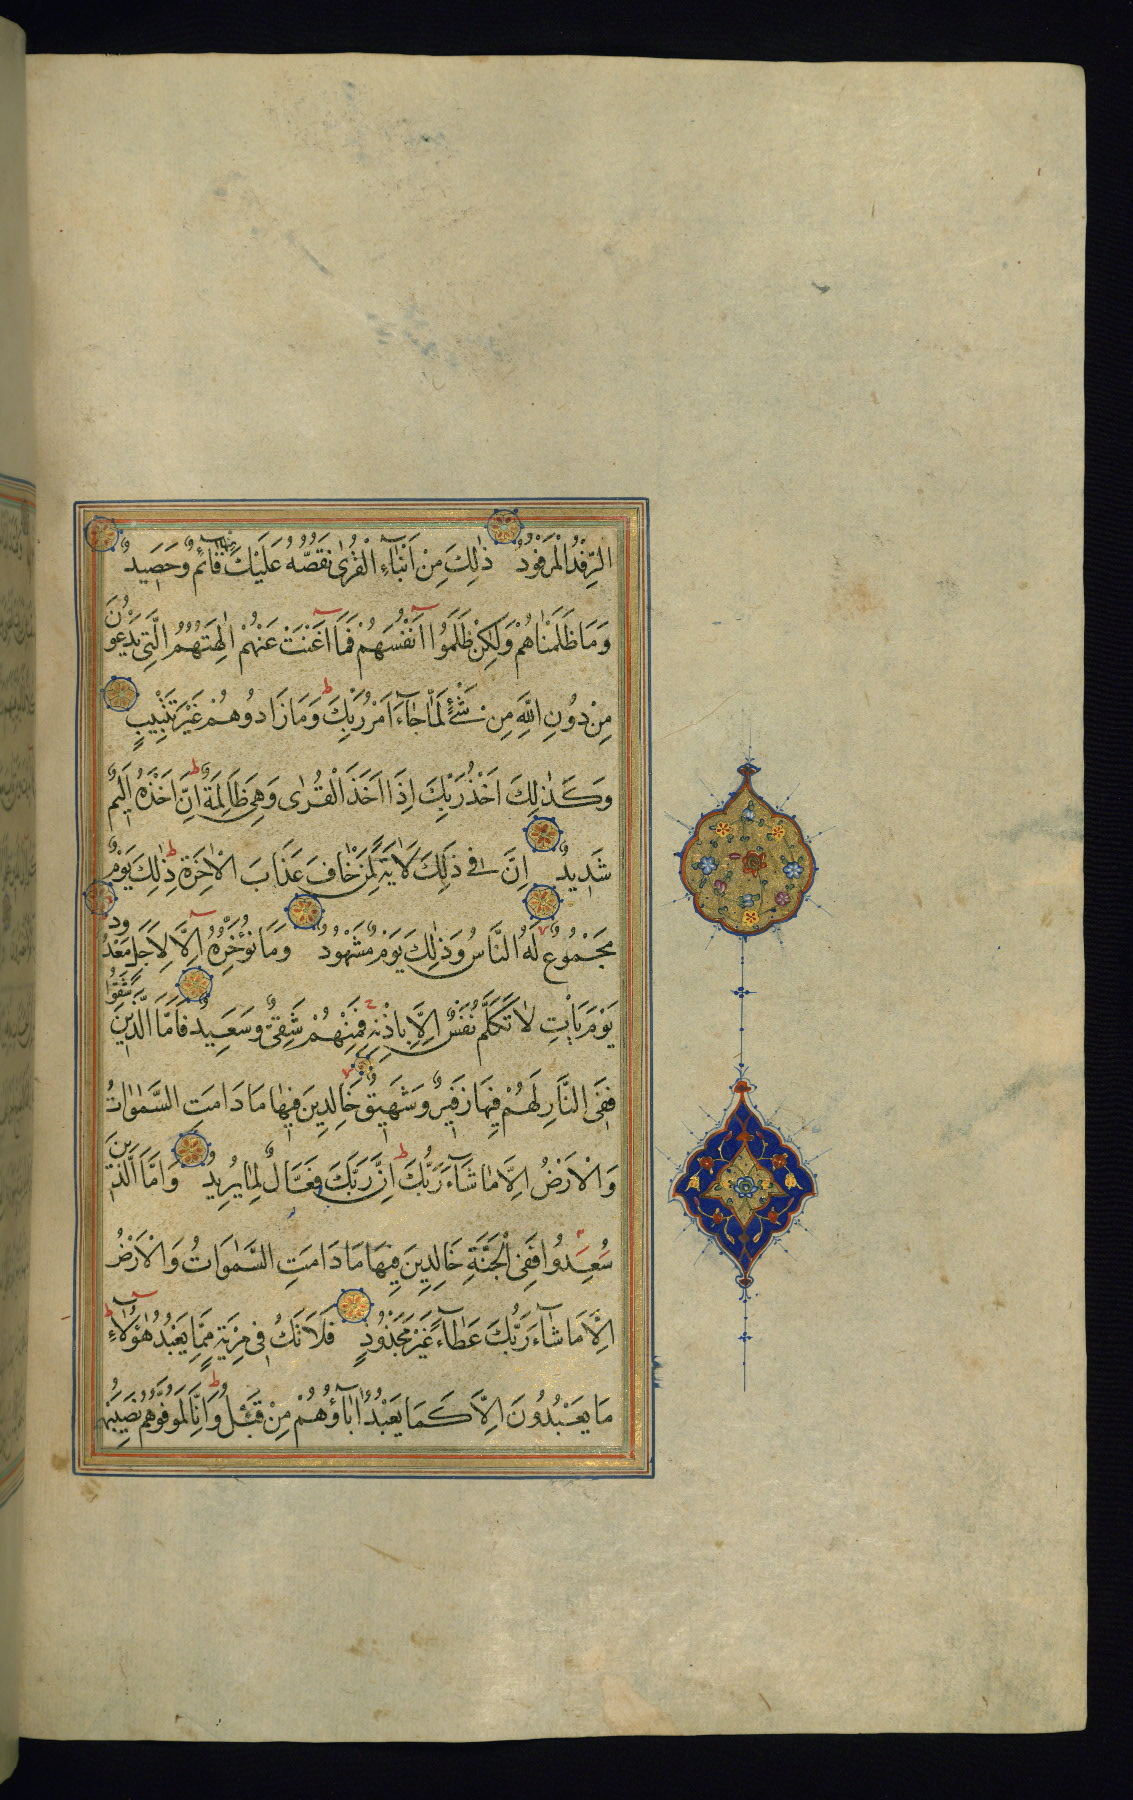 الرِّفْدُ الْمَرْفُودُ ذٰلِكَ مِنْ اَنْبَاءِ الْقُرٰى نَقُصُّهُ عَلَيْكَ مِنْهَا قَائِمٌ وَحَصِيدٌ
وَمَا ظَلَمْنَاهُمْ وَلٰكِنْ ظَلَمُوا اَنْفُسَهُمْ فَمَا اَغْنَتْ عَنْهُمْ اٰلِهَتُهُمُ الَّتِى يَدْعُونَ
مِنْ دُونِ اللّٰهِ مِنْ شَىْءٍ لَمَّا جَاءَ اَمْرُ رَبِّكَ ط وَمَا زَادُوهُمْ غَيْرَ تَتْبِيبٍ
وَكَذٰلِكَ اَخْذُ رَبِّكَ اِذَا اَخَذَ الْقُرٰى وَهِىَ ظَالِمَةٌ ط اِنَّ اَخْذَهُ اَلِيمٌ
شَدِيدٌ اِنَّ فِى ذٰلِكَ لَاٰيَةً لِمَنْ خَافَ عَذَابَ الْاٰخِرَةِ ط ذٰلِكَ يَوْمٌ
مَجْمُوعٌ لَهُ النَّاسُ وَذٰلِكَ يَوْمٌ مَشْهُودٌ وَمَا نُؤَخِّرُهُ اِلَّا لِاَجَلٍ مَعْدُودٍ
يَوْمَ يَأْتِ لَا تَكَلَّمُ نَفْسٌ اِلَّا بِاِذْنِهِ ج فَمِنْهُمْ شَقِىٌّ وَسَعِيدٌ فَاَمَّا الَّذِينَ شَقُوا
فَفِى النَّارِ لَهُمْ فِيهَا زَفِيرٌ وَشَهِيقٌ خَالِدِينَ فِيهَا مَا دَامَتِ السَّمٰوَاتُ
وَالْاَرْضُ اِلَّا مَا شَاءَ رَبُّكَ ط اِنَّ رَبَّكَ فَعَّالٌ لِمَا يُرِيدُ وَاَمَّا الَّذِينَ
سُعِدُوا فَفِى الْجَنَّةِ خَالِدِينَ فِيهَا مَا دَامَتِ السَّمٰوَاتُ وَالْاَرْضُ
اِلَّا مَا شَاءَ رَبُّكَ عَطَاءً غَيْرَ مَجْذُوذٍ فَلَا تَكُ فِى مِرْيَةٍ مِمَّا يَعْبُدُ هٰؤُلَاءِ ط
مَا يَعْبُدُونَ اِلَّا كَمَا يَعْبُدُ اٰبَاؤُهُمْ مِنْ قَبْلُ ط وَاِنَّا لَمُوَفُّوهُمْ نَصِيبَهُمْ